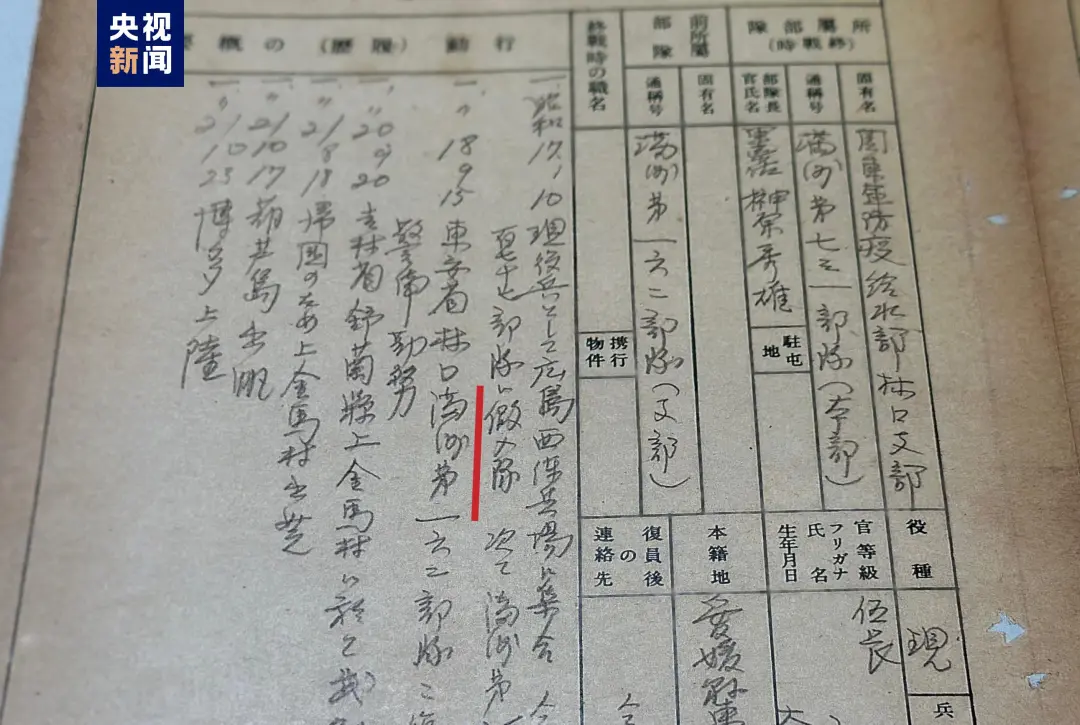 央视新闻
所屬部隊(終戰時)
固有名
関東軍防疫給水部林口支部
通稱号
満洲第七三一部隊(本部)
部隊長官氏名
榊原秀雄
駐屯地
前所屬部隊
固有名
通稱号
満洲第一六二部隊(支部)
終戰時の職名
携行物件
役種
現
兵
官等級
伍長
フリガナ
氏名
生年月日
本籍地
愛媛県
復員後の連絡先
行動(履歴)の概要
一昭和17.10 現役兵として広島西練兵場に集合
部隊に仮入隊 次で満洲第
一〃18 9 15 東安省林口満洲第一六二部隊ニ
警備勤務
一〃20 9 20 吉林省舒蘭縣上金馬村ニ於て
一〃21 8 18 帰国のため上金馬村出発
一〃21 10 17 葫芦島出帆
一〃21 10 23 博多上陸